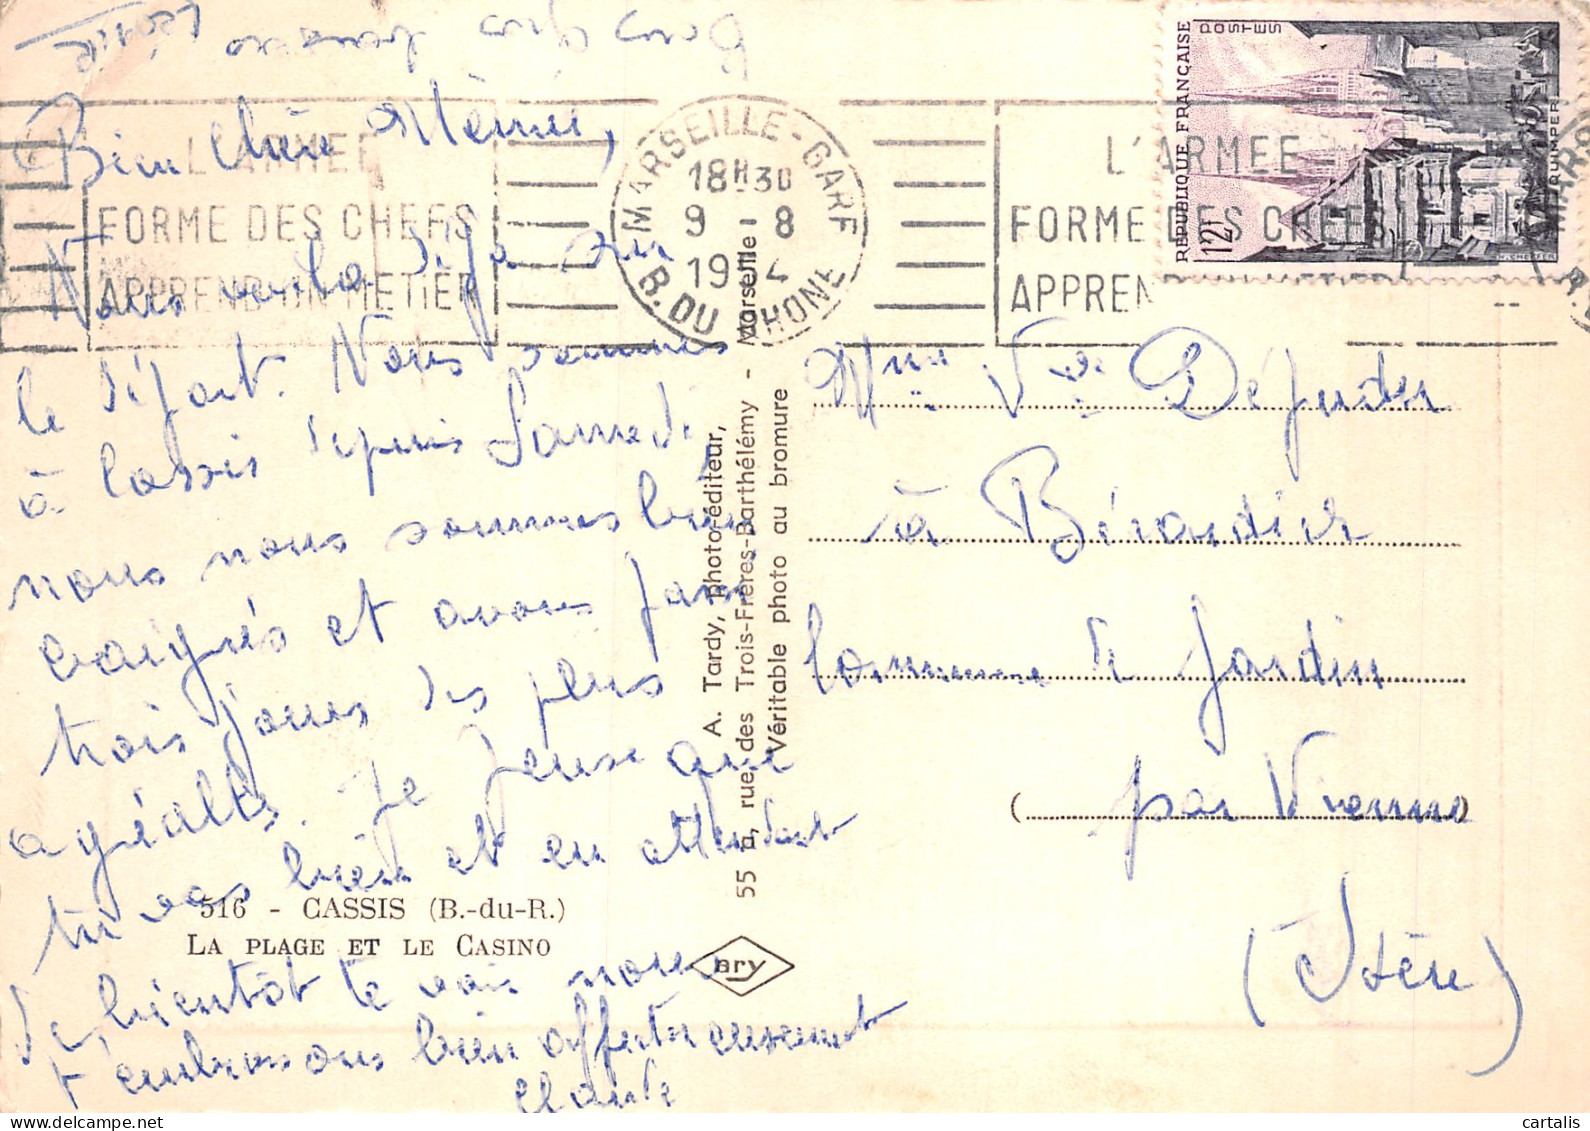 Bons gros baisers
Bien chère Mémée,
Nous voilà déjà sur
le départ. Nous sommes
à Cassis depuis Samedi
nous nous sommes bien
baignés et avons passé
trois jours des plus
agréable. Je pense que
tu vas bien et en attendant
de bientôt te voir nous
t'embrassons bien affectueusement
L'ARMEE
FORME DES CHEFS
APPREND UN METIER
MARSEILLE-GARE
18H30
9 - 8
19 4
B. DU RHONE
L'ARMEE
FORME DES CHEFS
APPREN
REPUBLIQUE FRANÇAISE
POSTES
12F
QUIMPER
Mme Vve
à Bérardier
Commune de Jardin
par Vienne
(Isère)
A. Tardy, photo-éditeur,
55 a, rue des Trois-Frères-Barthélémy - Marseille
Véritable photo au bromure
516 - CASSIS (B.-du-R.)
LA PLAGE ET LE CASINO
ary
cartalis.com